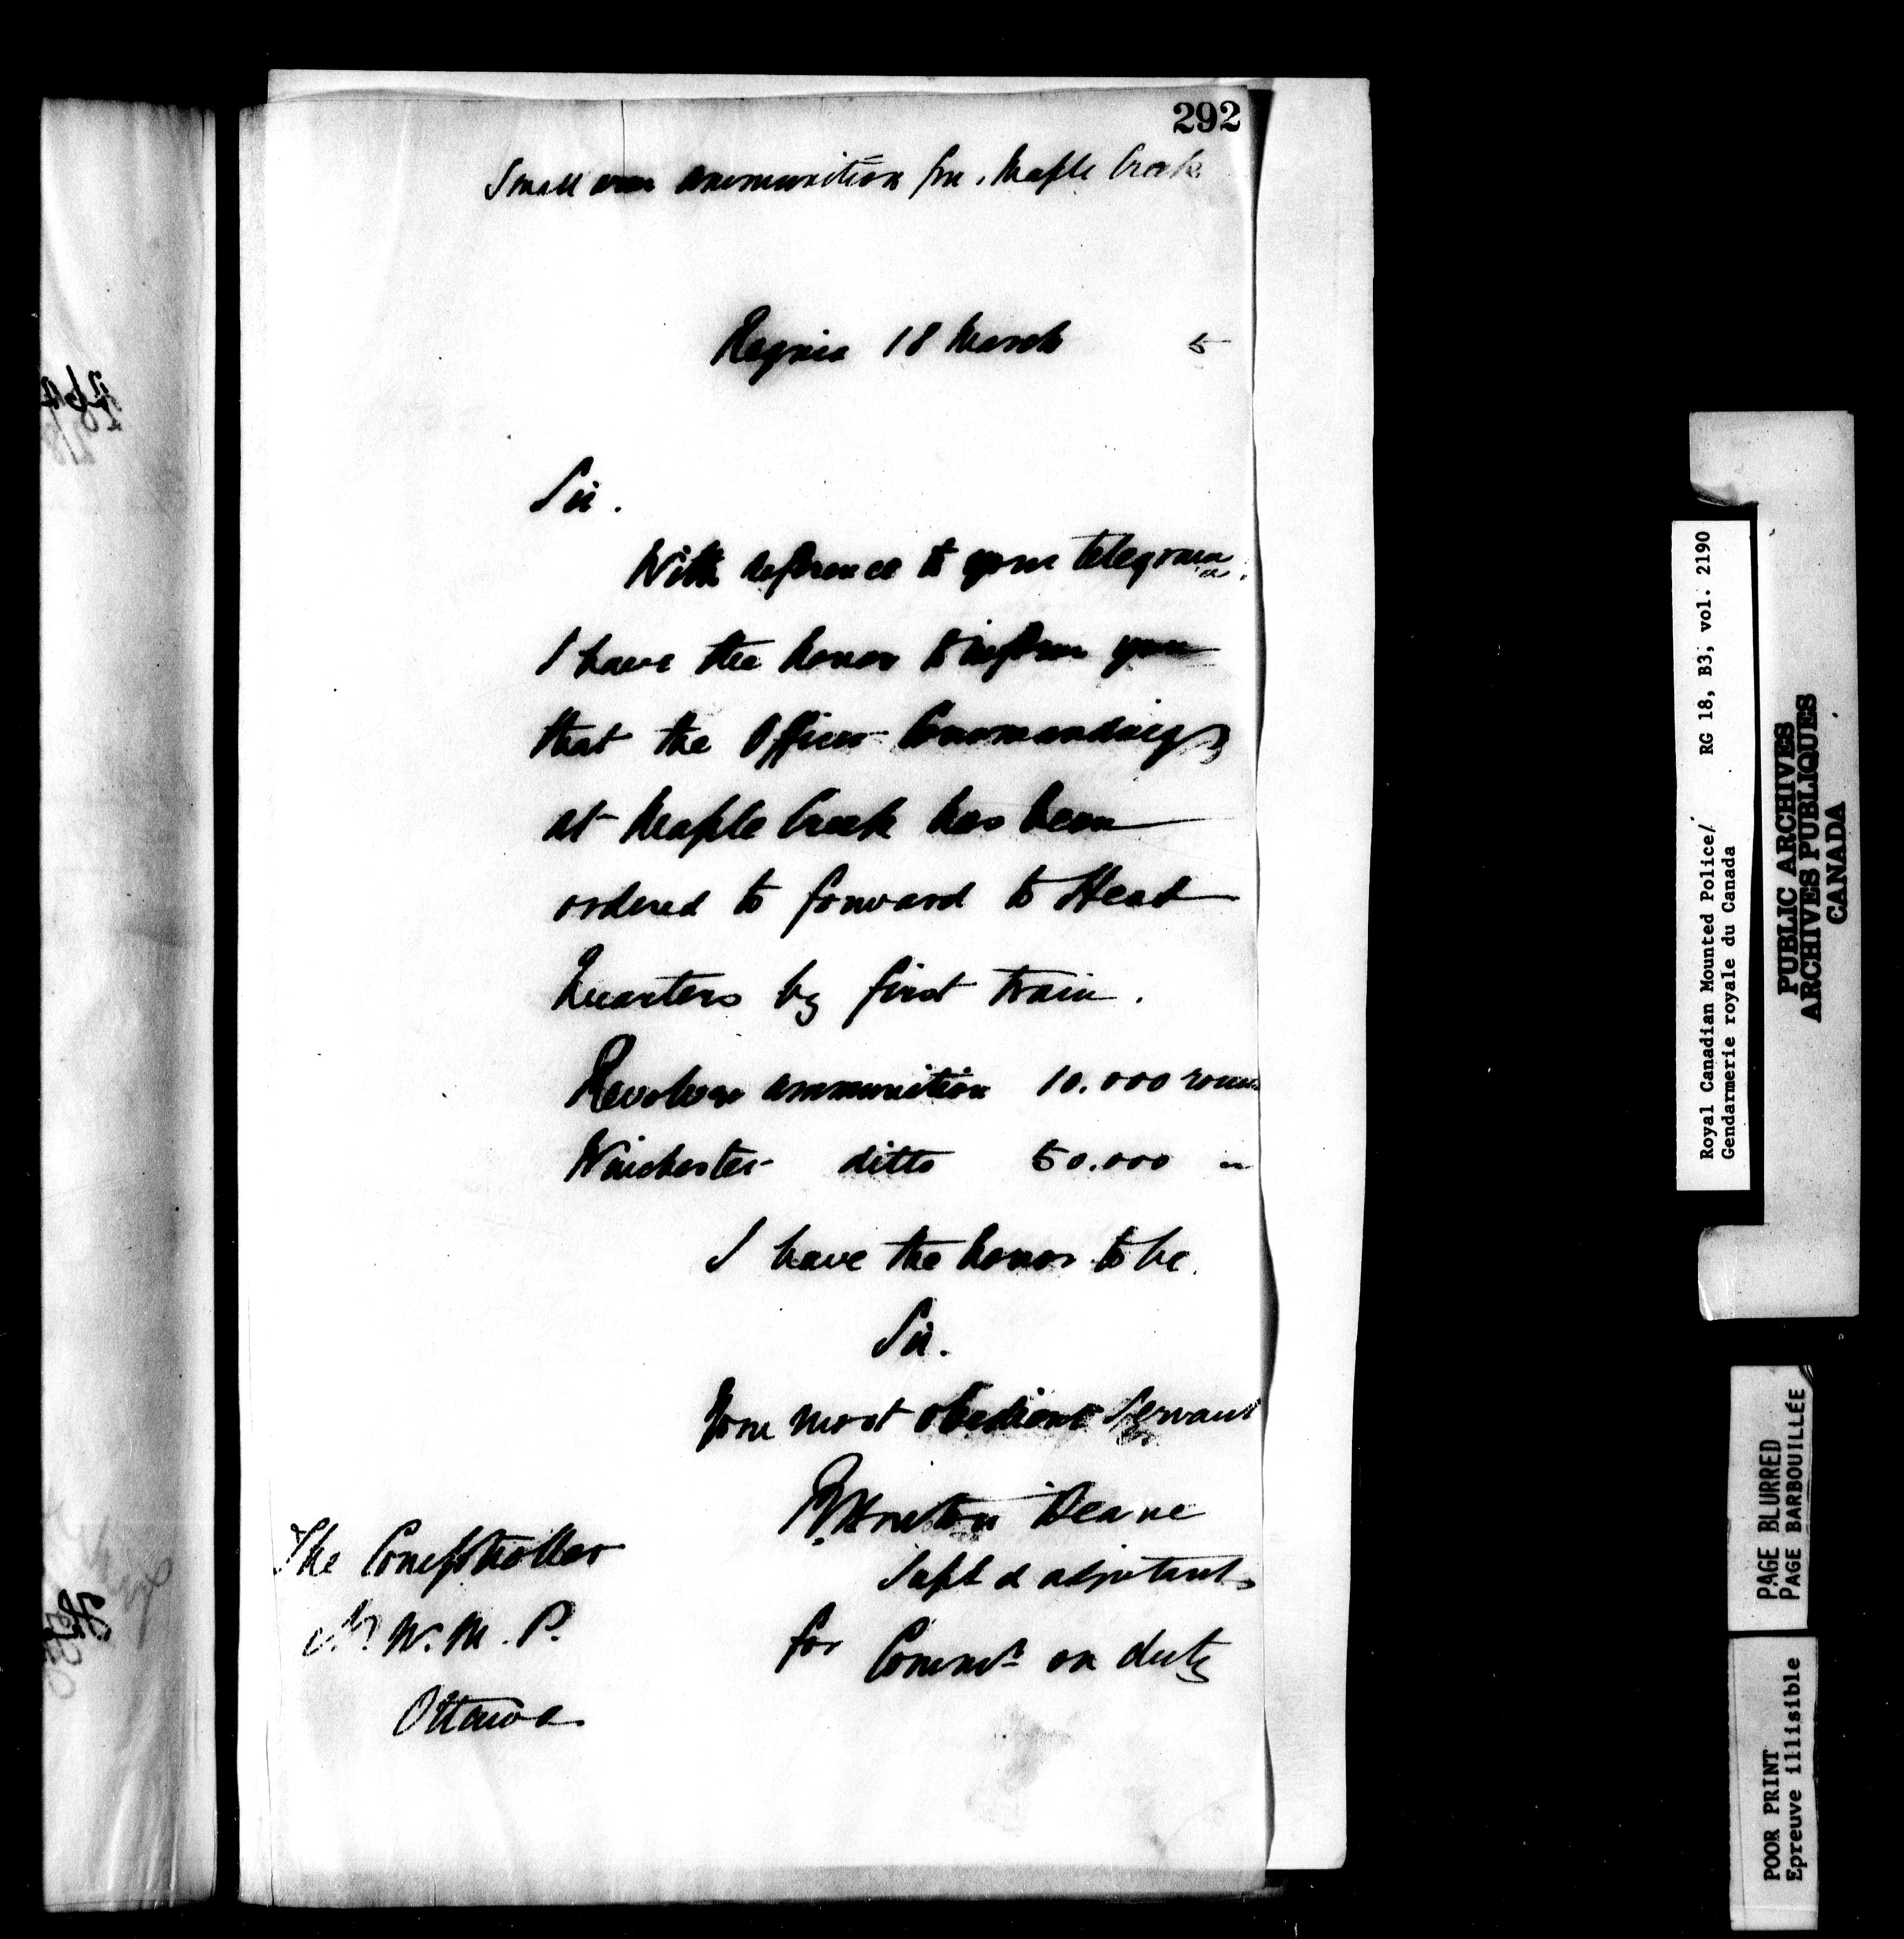 292
Small arm ammunition fm. Maple Creek
Regina 18 March 5
Sir.
With reference to your telegram.
I have the honor to inform you
that the Officer Commanding
at Maple Creek has been
ordered to forward to Head
Quarters by first train.
Revolver ammunition 10.000 roun
Winchester ditto 50.000 "
I have the honor to be.
Sir.
Your most obedient Servant
R Burton Deane
Supt & adjutant
for Commr on duty
The Comptroller
N. W. M. P.
Ottawa
Royal Canadian Mounted Police/ RG 18, B3, vol. 2190
Gendarmerie royale du Canada
PUBLIC ARCHIVES
ARCHIVES PUBLIQUES
CANADA
PAGE BLURRED
PAGE BARBOUILLÉE
POOR PRINT
Epreuve illisible